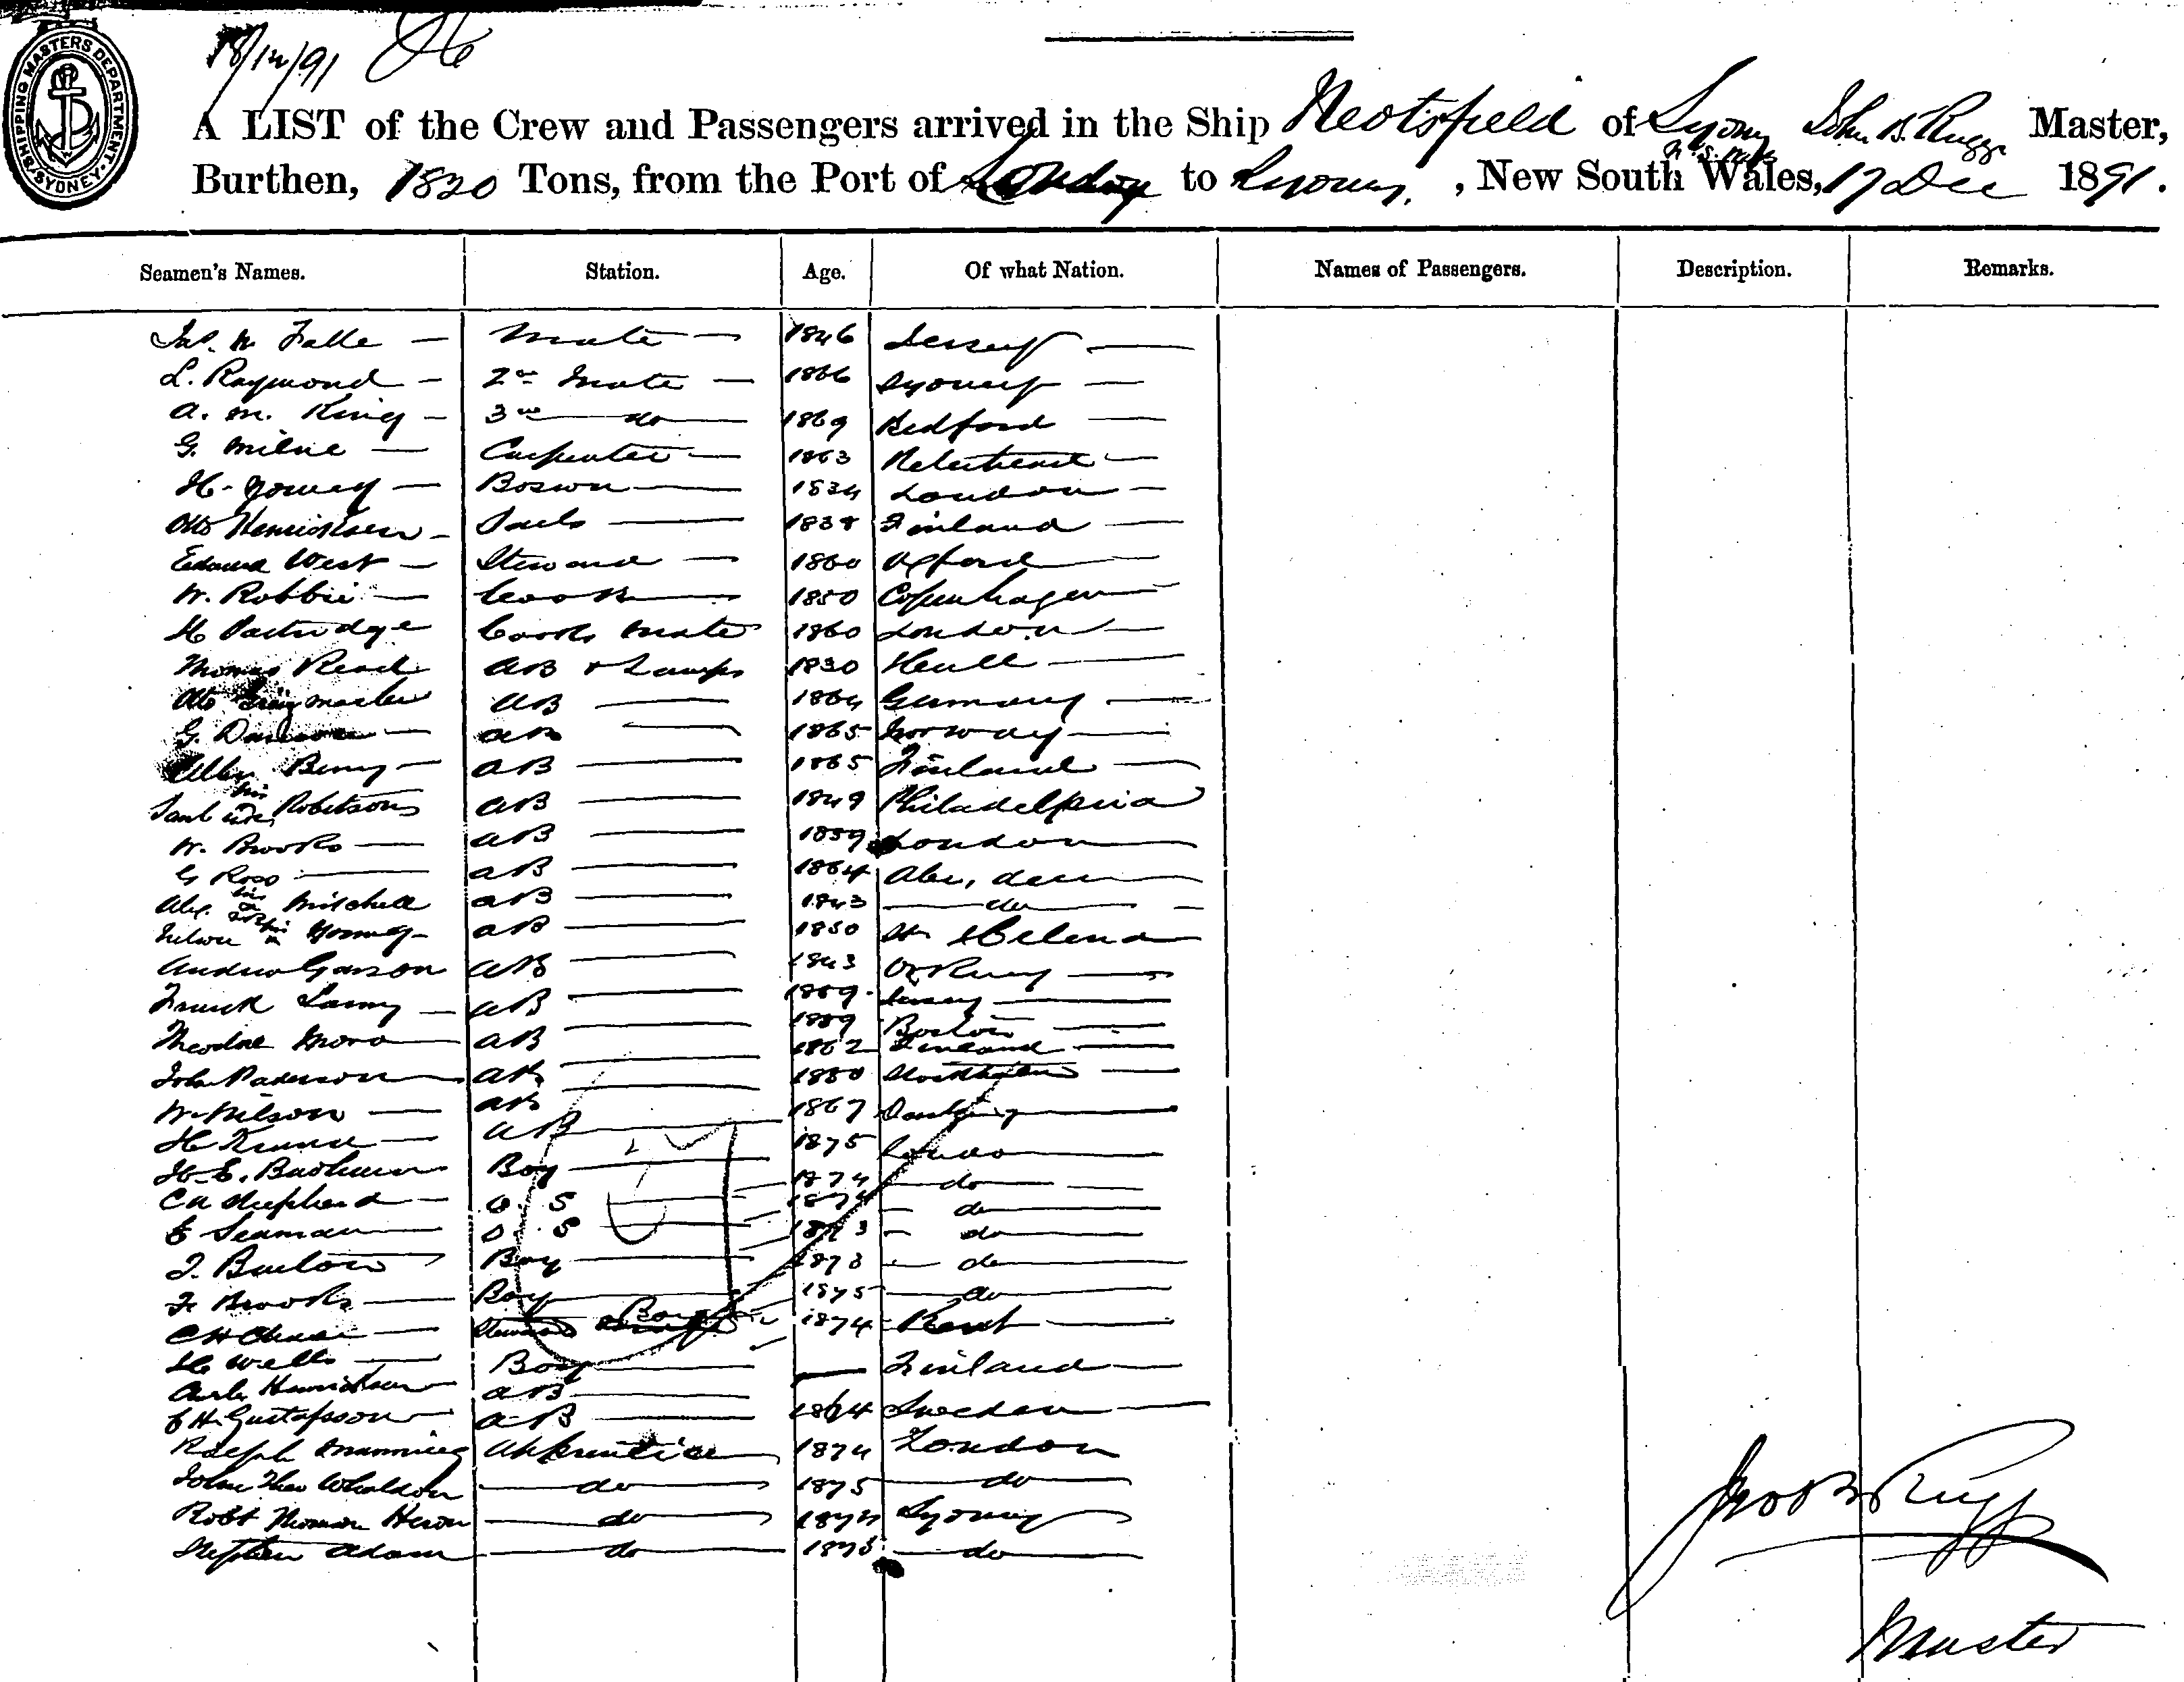 18/12/91
SHIPPING MASTERS DEPARTMENT. SYDNEY.
A LIST of the Crew and Passengers arrived in the Ship Neotsfield of Sydney John B. Rugg Master,
N.S. Wales
Burthen, 1820 Tons, from the Port of London to Sydney, New South Wales, 17 Dec 1891.
Seamen's Names. Station. Age. Of what Nation. Names of Passengers. Description. Remarks.
Jas. W Falle — Mate — 1846 Jersey —
L. Raymond — 2nd Mate — 1866 Sydney —
A. M. King — 3rd — do — 1869 Bedford —
G. Milne — Carpenter — 1863 Peterhead —
H. — Boswn — 1834 London —
Otto Henricksen — Sails — 1838 Finland —
Edward West — Steward — 1860 Oxford —
W. Robbie — Cook — 1850 Copenhagen —
H Partridge Cooks Mate 1860 London —
Thomas Read AB & Lamps 1830 Hull —
Otto AB — 1864 Germany —
G. — AB — 1865 Norway —
Berry — AB — 1865 Finland —
his Robertson AB — 1849 Philadelphia
W. Brooks — AB — 1859 London —
G Ross — AB — 1864 Aberdeen —
Alex. his Mitchell AB — 1843 — do —
Nelson his Young — AB — 1850 St Helena
Andrew Garson AB — 1843 Orkney —
Frank Larny — AB — 1869 Jersey —
Theodore Moro — AB — 1859 Boston —
John Paderson — AB — 1862 Finland —
W. Nilson — AB — 1850 Stockholm —
H — AB — 1867
H. E. Boy — 1875 London —
C A Shepherd — O. S — 1874 — do —
E Seaman — O. S — 1874 — do —
T. Barlow Boy — 1873 — do —
F. Brooks — Boy — 1873 — do —
C H — Steward Boy 1875 — do —
H Wells — Boy — 1874 Kent —
AB — — Finland —
E H. Gustafsson — AB — 1864 Sweden —
Ralph Manning Apprentice 1874 London
John Theo Whieldon — do — 1875 — do —
Robt Thomson Heron — do — 1874 Sydney
Stephen Adam — do — 1873 — do —
Jno B Rugg
Master